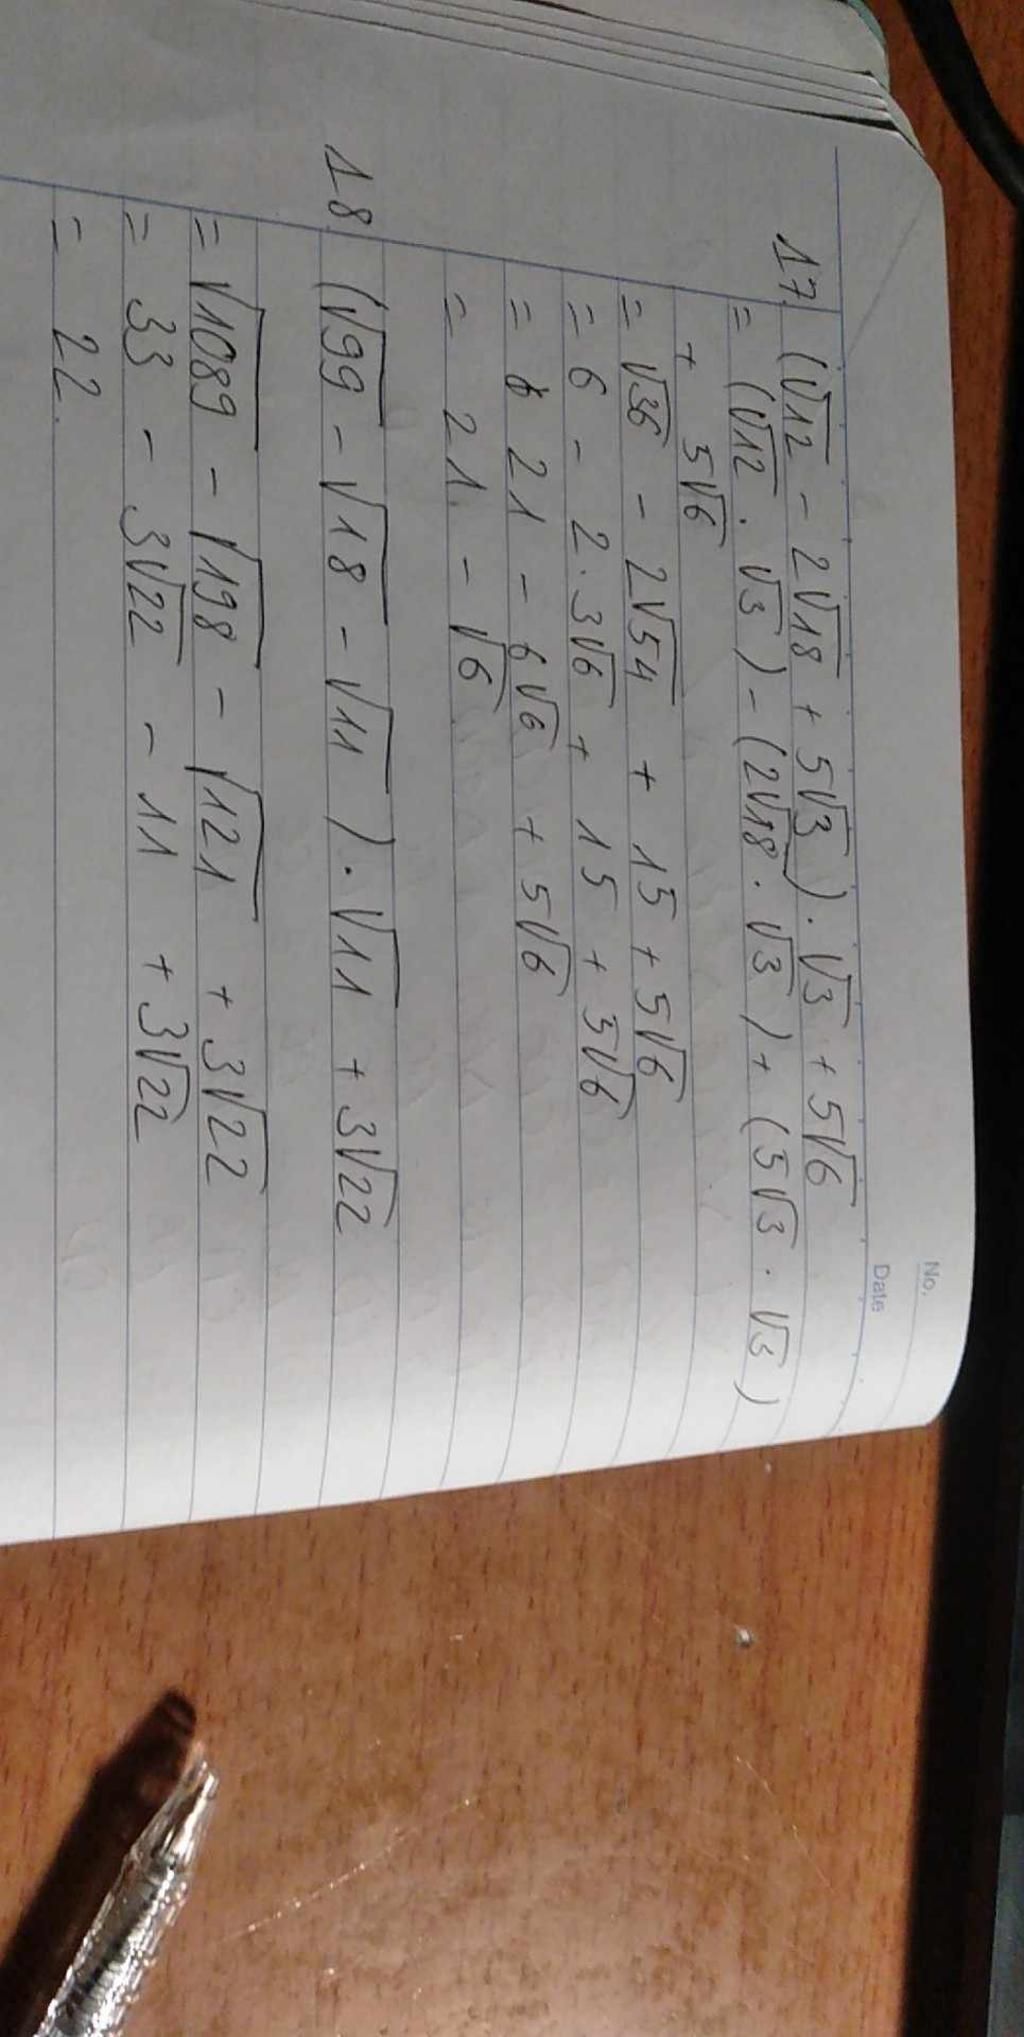 No.
Date
17. (√12 - 2√18 + 5√3) . √3 + 5√6
= (√12 . √3) - (2√18 . √3) + (5√3 . √3)
+ 5√6
= √36 - 2√54 + 15 + 5√6
= 6 - 2.3√6 + 15 + 5√6
= 21 - 6√6 + 5√6
= 21 - √6
18. (√99 - √18 - √11) . √11 + 3√22
= √1089 - √198 - √121 + 3√22
= 33 - 3√22 - 11 + 3√22
= 22.